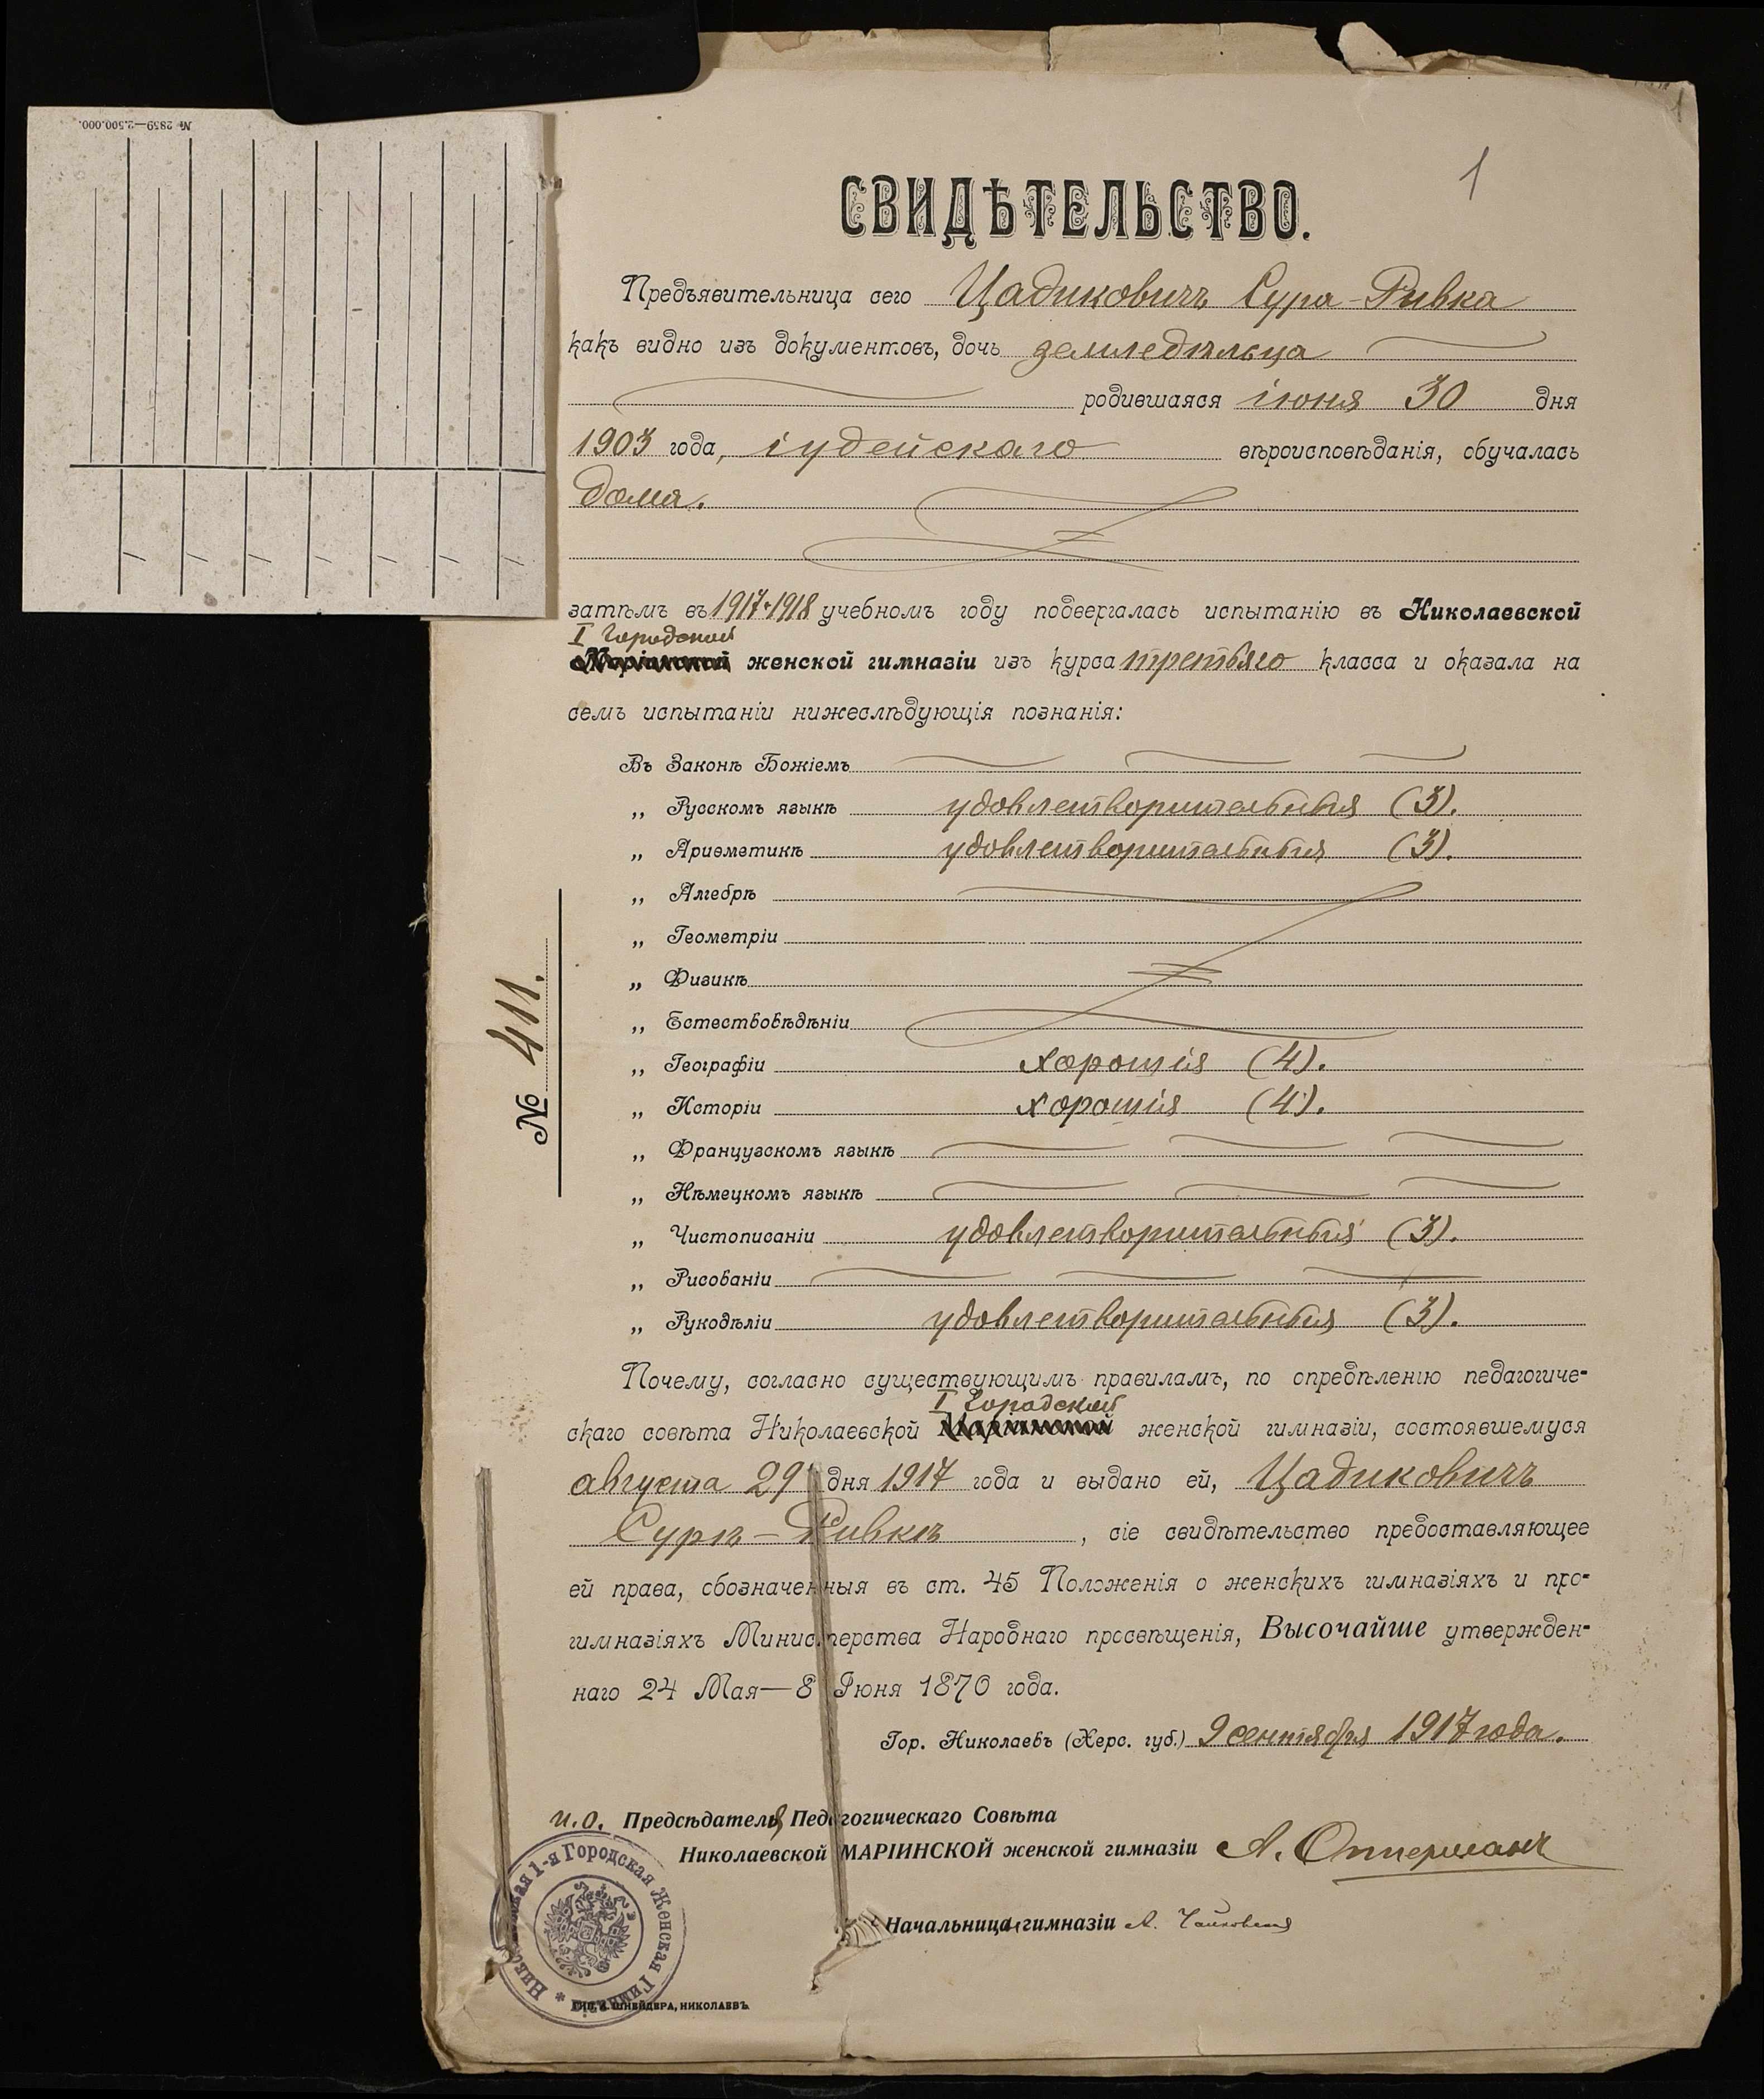 № 2859—2.500.000.
1
СВИДѢТЕЛЬСТВО.
Предъявительница сего Цадиковичъ Сура-Ривка
какъ видно изъ документовъ, дочь земледѣльца
родившаяся іюня 30 дня
1903 года, іудейскаго вѣроисповѣданія, обучалась
дома.
затѣмъ въ 1917-1918 учебномъ году подвергалась испытанію въ Николаевской
I Городской
Маріинской женской гимназіи изъ курса третьяго класса и оказала на
семъ испытаніи нижеслѣдующія познанія:
Въ Законѣ Божіемъ
„ Русскомъ языкѣ удовлетворительныя (3).
„ Ариѳметикѣ удовлетворительныя (3).
„ Алгебрѣ
„ Геометріи
„ Физикѣ
„ Естествовѣдѣніи
„ Географіи хорошія (4).
„ Исторіи хорошія (4).
„ Французскомъ языкѣ
„ Нѣмецкомъ языкѣ
„ Чистописаніи удовлетворительныя (3).
„ Рисованіи
„ Рукодѣліи удовлетворительныя (3).
№ 411.
Почему, согласно существующимъ правиламъ, по опредѣленію педагогиче-
I Городской
скаго совѣта Николаевской Маріинской женской гимназіи, состоявшемуся
августа 29 дня 1917 года и выдано ей, Цадиковичъ
Сурѣ-Ривкѣ, сіе свидѣтельство предоставляющее
ей права, обозначенныя въ ст. 45 Положенія о женскихъ гимназіяхъ и про-
гимназіяхъ Министерства Народнаго просвѣщенія, Высочайше утвержден-
наго 24 Мая—8 Іюня 1870 года.
Гор. Николаевъ (Херс. губ.) 9 сентября 1917 года.
и.о. Предсѣдателя Педагогическаго Совѣта
Николаевской МАРІИНСКОЙ женской гимназіи А. Оттерманъ
Начальницы гимназіи А. Чайковская
Николаевская 1-я Городская Женская Гимназія *
ТИП. Л. ШНЕЙДЕРА, НИКОЛАЕВЪ.